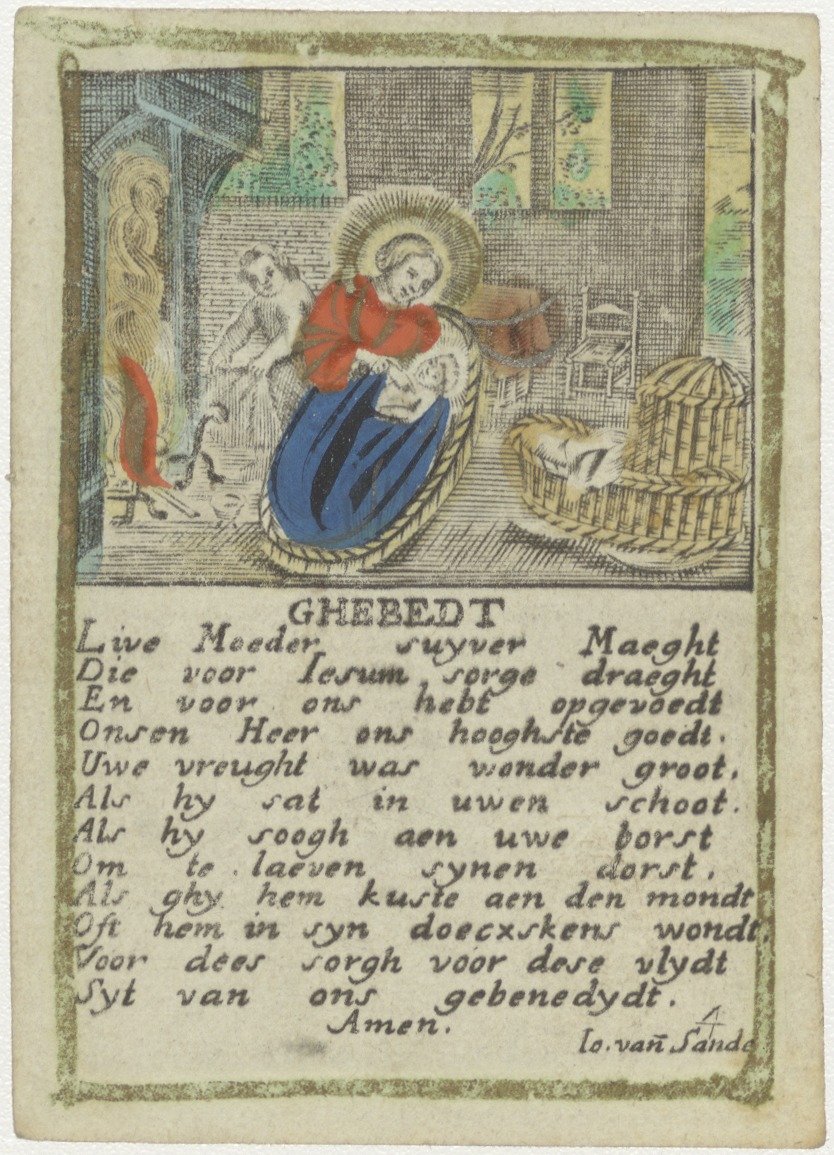 GHEBEDT
Live Moeder suyver Maeght
Die voor Iesum sorge draeght
En voor ons hebt opgevoedt
Onsen Heer ons hooghste goedt.
Uwe vreught was wonder groot,
Als hy sat in uwen schoot.
Als hy soogh aen uwe borst
Om te laeven synen dorst,
Als ghy hem kuste aen den mondt
Oft hem in syn doecxskens wondt
Voor dees sorgh voor dese vlydt
Syt van ons gebenedydt.
Amen.
4
Io. vañ Sande